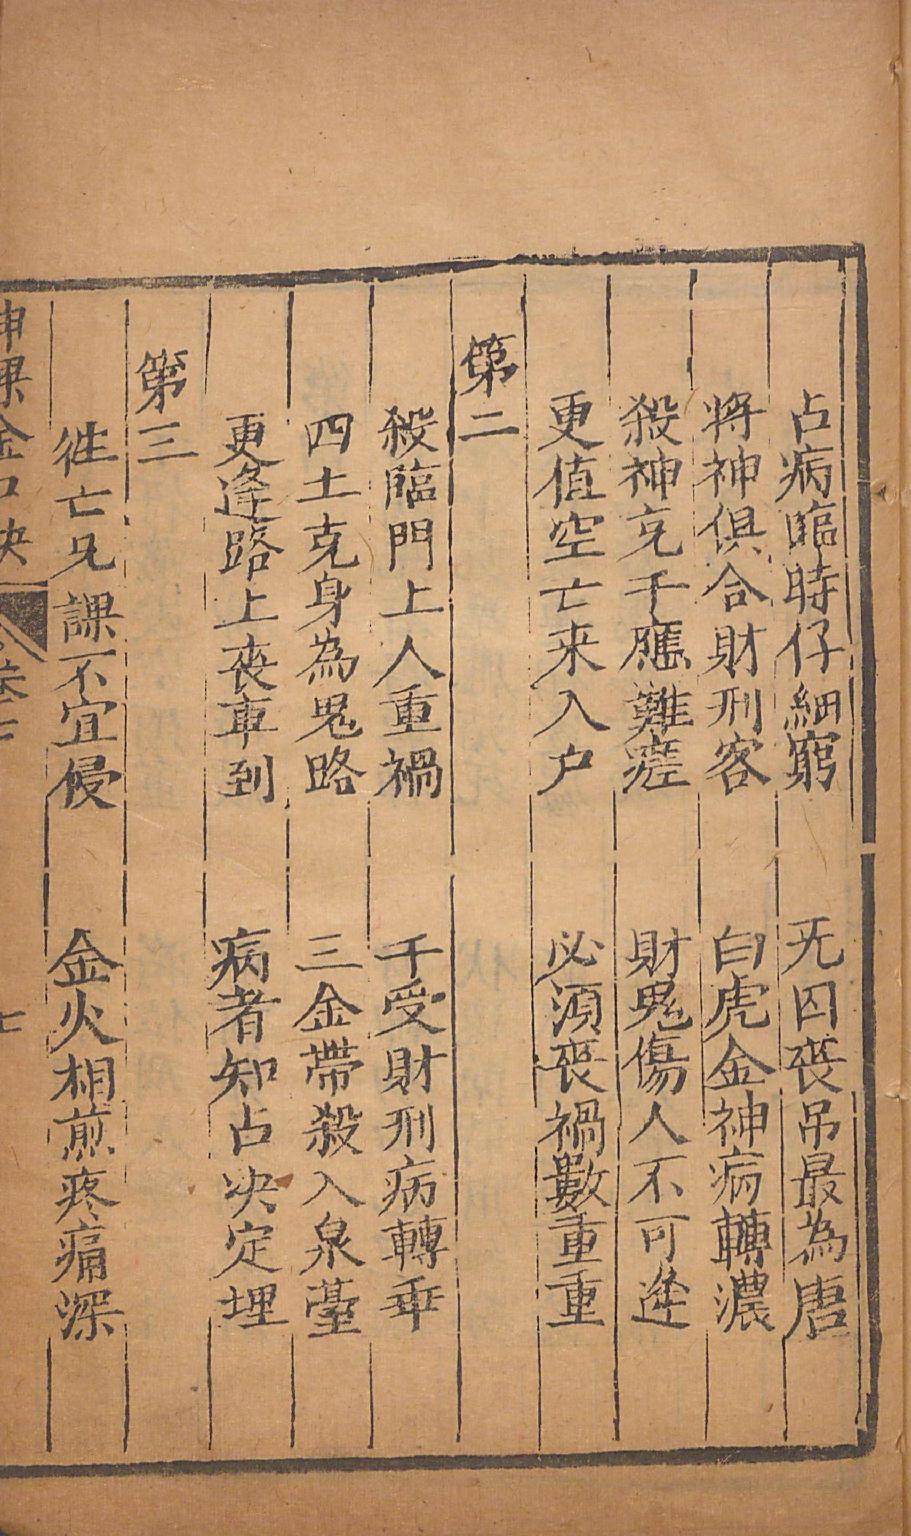 占病臨時仔細窮　无囚丧吊最為唐
将神俱合財刑客　白虎金神病轉濃
殺神克干應難瘥　財鬼傷人不可逄
更值空亡来入户　必湏丧禍數重重
第二
殺臨門上人重禍　千受財刑病轉乖
四土克身為鬼路　三金帶殺入泉臺
更逢路上丧車到　病者知占决定埋
第三
徃亡凡課不宜侵　金火相煎疼痛深
神課金口訣　卷七　七